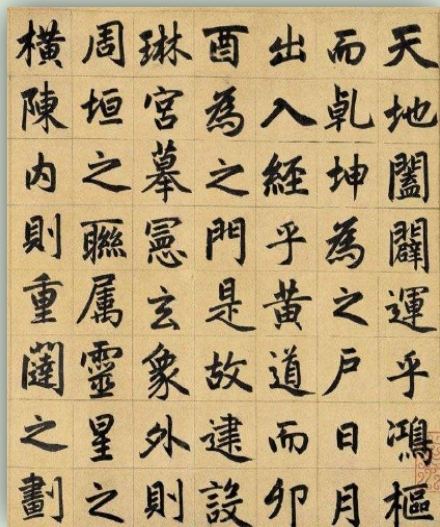 天地闔闢運乎鴻樞
而乹坤為之戶日月
出入経乎黃道而卯
酉為之門是故建設
琳宮摹憲玄象外則
周垣之聮属靈星之
橫陳内則重闥之劃